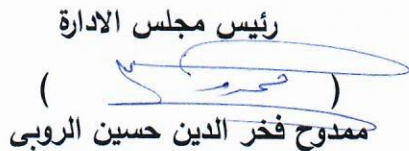 رئيس مجلس الادارة
( )
ممدوح فخر الدين حسين الروبى